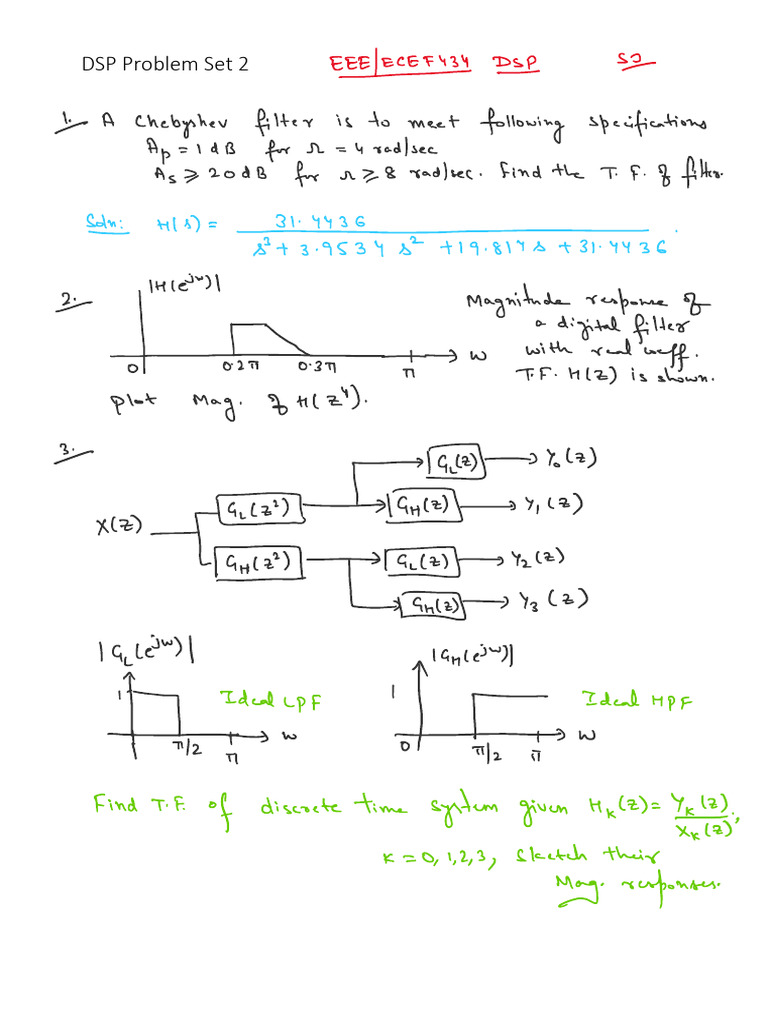 DSP Problem Set 2
EEE/ECE F434 DSP SJ
1. A Chebyshev filter is to meet following specifications
Ap = 1 dB for Ω = 4 rad/sec
As ≥ 20 dB for Ω ≥ 8 rad/sec. Find the T. F. of filter.
Soln: H(s) = 31.4436
s³ + 3.9534 s² + 19.817 s + 31.4436 .
2. |H(e^jω)|
0 0.2π 0.3π π ω
Magnitude response of
a digital filter
with real coeff.
T.F. H(Z) is shown.
Plot Mag. of H(Z⁴).
3.
X(Z)
G_L(Z²)
G_H(Z²)
G_L(Z) Y₀(Z)
G_H(Z) Y₁(Z)
G_L(Z) Y₂(Z)
G_H(Z) Y₃(Z)
|G_L(e^jω)|
1 Ideal LPF
π/2 π ω
|G_H(e^jω)|
1 Ideal HPF
0 π/2 π ω
Find T.F. of discrete time system given H_K(Z) = Y_K(Z)/X_K(Z),
K = 0, 1, 2, 3, Sketch their
Mag. responses.